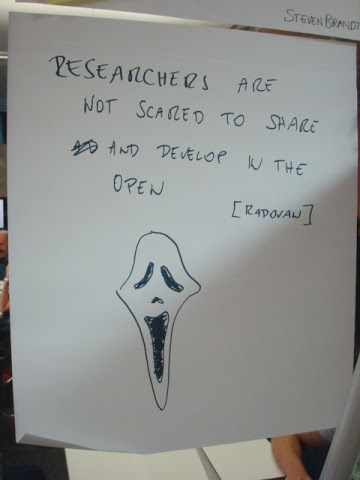 STEVEN BRANDT
RESEARCHERS ARE
NOT SCARED TO SHARE
AND DEVELOP IN THE
OPEN
[RADOVAN]